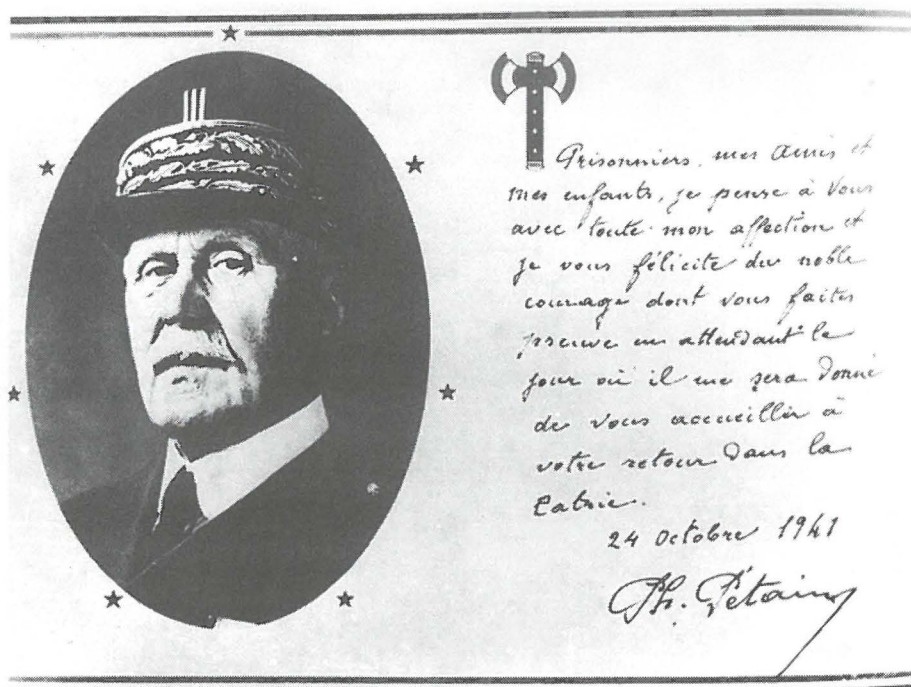 Prisonniers, mes Amis et
mes enfants, je pense à Vous
avec toute mon affection et
je vous félicite du noble
courage dont vous faites
preuve en attendant le
jour où il me sera donné
de vous accueillir à
votre retour dans la
Patrie.
24 Octobre 1941
Ph. Pétain